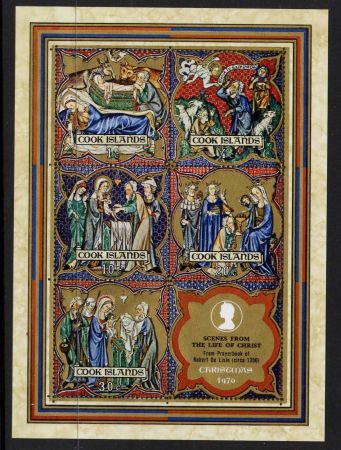 COOK ISLANDS
1c
COOK ISLANDS
COOK ISLANDS
10c
COOK ISLANDS
20c
COOK ISLANDS
30c
SCENES FROM
THE LIFE OF CHRIST
From Prayerbook of
Robert De Lisle (circa 1390)
CHRISTMAS
1970